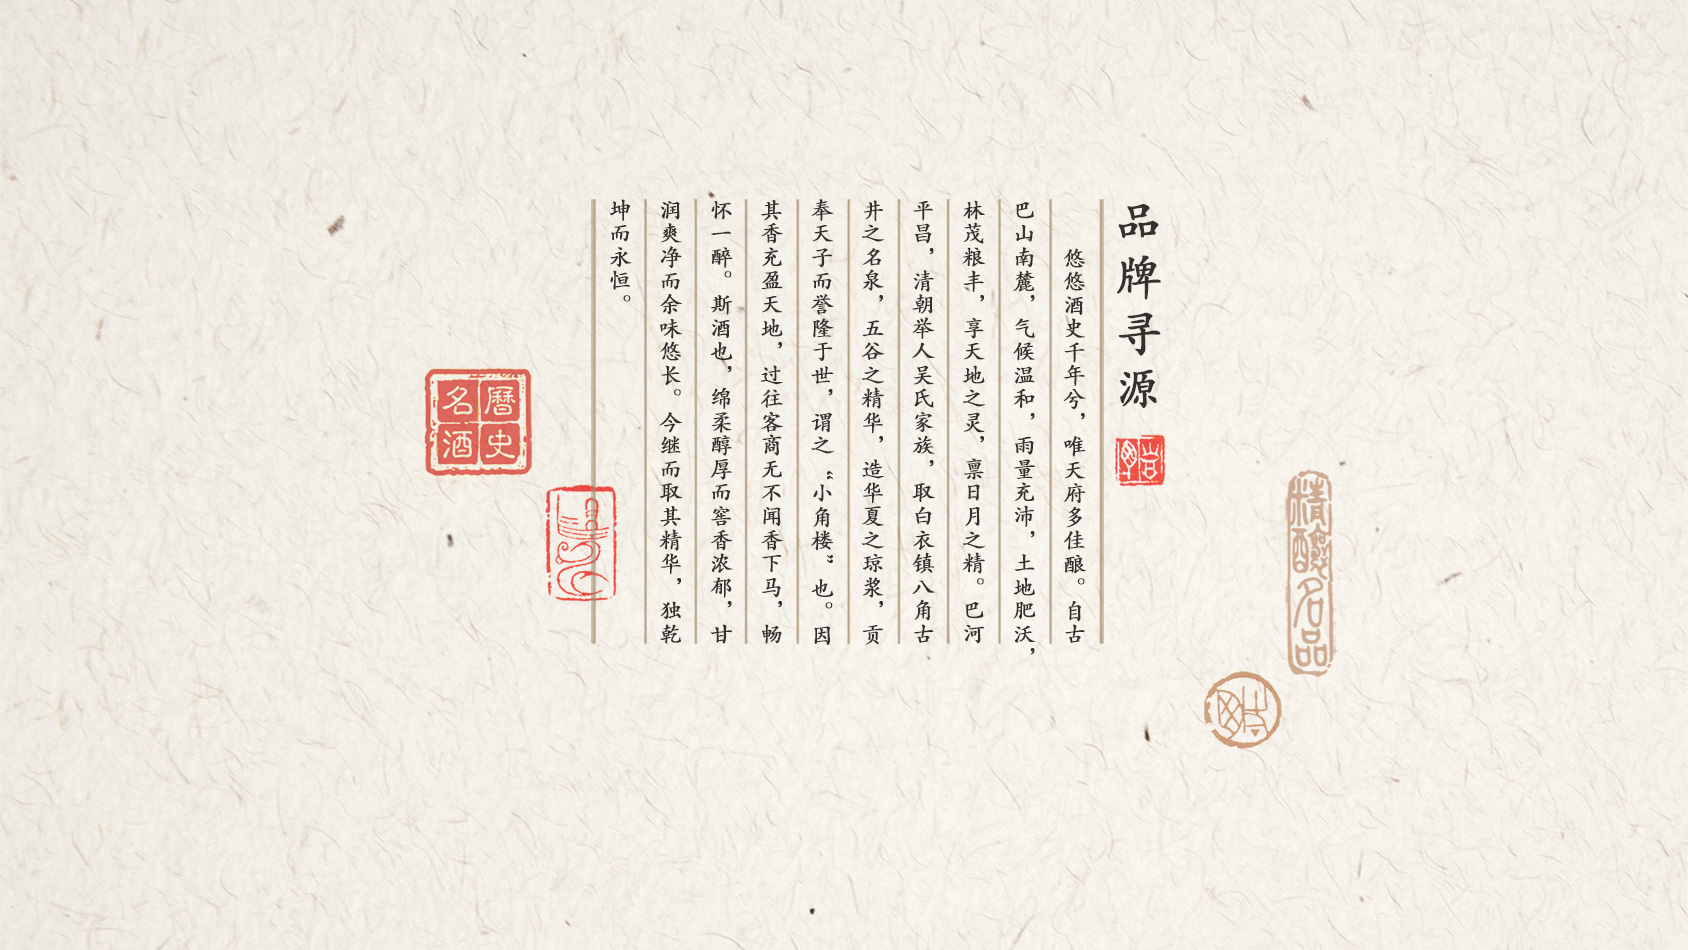 品牌寻源
悠悠酒史千年兮，唯天府多佳酿。自古
巴山南麓，气候温和，雨量充沛，土地肥沃，
林茂粮丰，享天地之灵，禀日月之精。巴河
平昌，清朝举人吴氏家族，取白衣镇八角古
井之名泉，五谷之精华，造华夏之琼浆，贡
奉天子而誉隆于世，谓之“小角楼”也。因
其香充盈天地，过往客商无不闻香下马，畅
怀一醉。斯酒也，绵柔醇厚而窖香浓郁，甘
润爽净而余味悠长。今继而取其精华，独乾
坤而永恒。
曆史
名酒
精釀名品